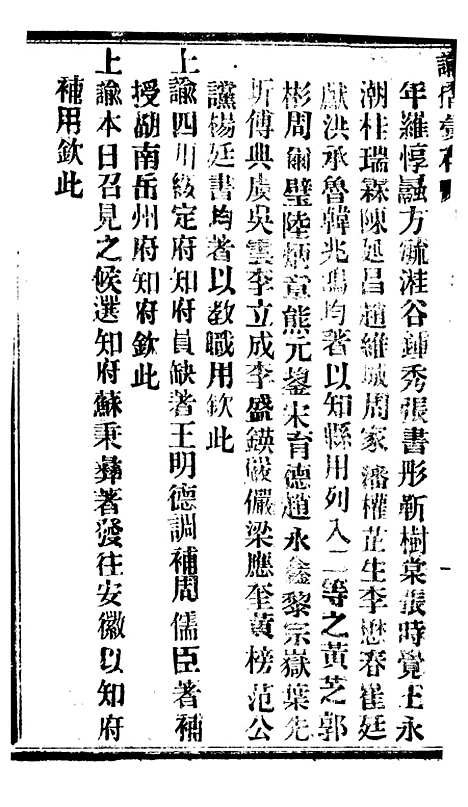 諭摺彙存
年羅惇融方毓溎谷鍾秀張書彤靳樹棠張時覺王永
潮桂瑞霖陳延昌趙維城周家潘權芷生李懋春崔廷
獻洪承魯韓兆鴻均著以知縣用列入二等之黃芝郭
彬周爾璧陸炳章熊元鍙宋育德趙永鑫黎宗嶽葉先
圻傅典虞吳雲李立成李盛鍈嚴儼梁應奎黃榜范公
讜楊廷書均著以教職用欽此
上諭四川綏定府知府員缺著王明德調補周儒臣著補
授湖南岳州府知府欽此
上諭本日召見之候選知府蘇秉彝著發往安徽以知府
補用欽此